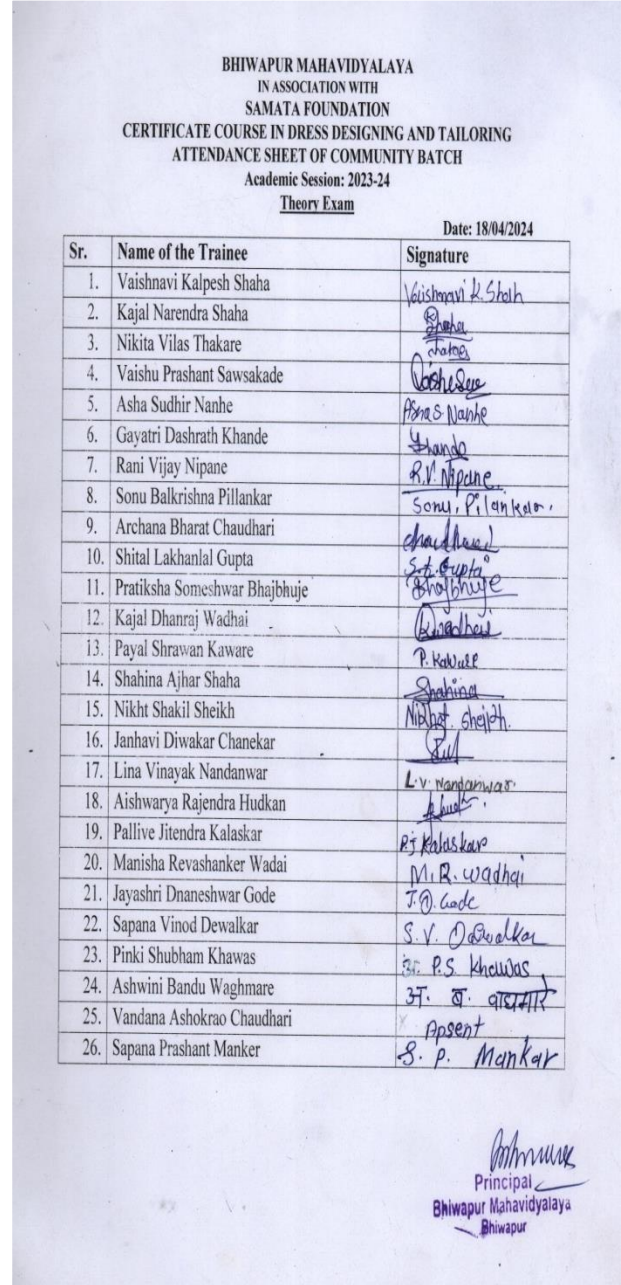 BHIWAPUR MAHAVIDYALAYA
IN ASSOCIATION WITH
SAMATA FOUNDATION
CERTIFICATE COURSE IN DRESS DESIGNING AND TAILORING
ATTENDANCE SHEET OF COMMUNITY BATCH
Academic Session: 2023-24
Theory Exam
Date: 18/04/2024
Sr. Name of the Trainee Signature
1. Vaishnavi Kalpesh Shaha Vaishnavi K. Shah
2. Kajal Narendra Shaha
3. Nikita Vilas Thakare
4. Vaishu Prashant Sawsakade
5. Asha Sudhir Nanhe Asha S Nanhe
6. Gayatri Dashrath Khande
7. Rani Vijay Nipane R.V. Nipane.
8. Sonu Balkrishna Pillankar Sonu. Pilankar.
9. Archana Bharat Chaudhari
10. Shital Lakhanlal Gupta S.L. Gupta
11. Pratiksha Someshwar Bhajbhuje Bhajbhuje
12. Kajal Dhanraj Wadhai
13. Payal Shrawan Kaware P. Kaware
14. Shahina Ajhar Shaha Shahina
15. Nikht Shakil Sheikh Nikhat. Sheikh.
16. Janhavi Diwakar Chanekar
17. Lina Vinayak Nandanwar L.V. Nandanwar.
18. Aishwarya Rajendra Hudkan
19. Pallive Jitendra Kalaskar P.J Kalaskar
20. Manisha Revashanker Wadai M.R. Wadhai
21. Jayashri Dnaneshwar Gode J.D. Gode
22. Sapana Vinod Dewalkar S.V. Dewalkar
23. Pinki Shubham Khawas P.S. Khawas
24. Ashwini Bandu Waghmare अ. ब. वाघमारे
25. Vandana Ashokrao Chaudhari Apsent
26. Sapana Prashant Manker S. P. Mankar
Principal
Bhiwapur Mahavidyalaya
Bhiwapur